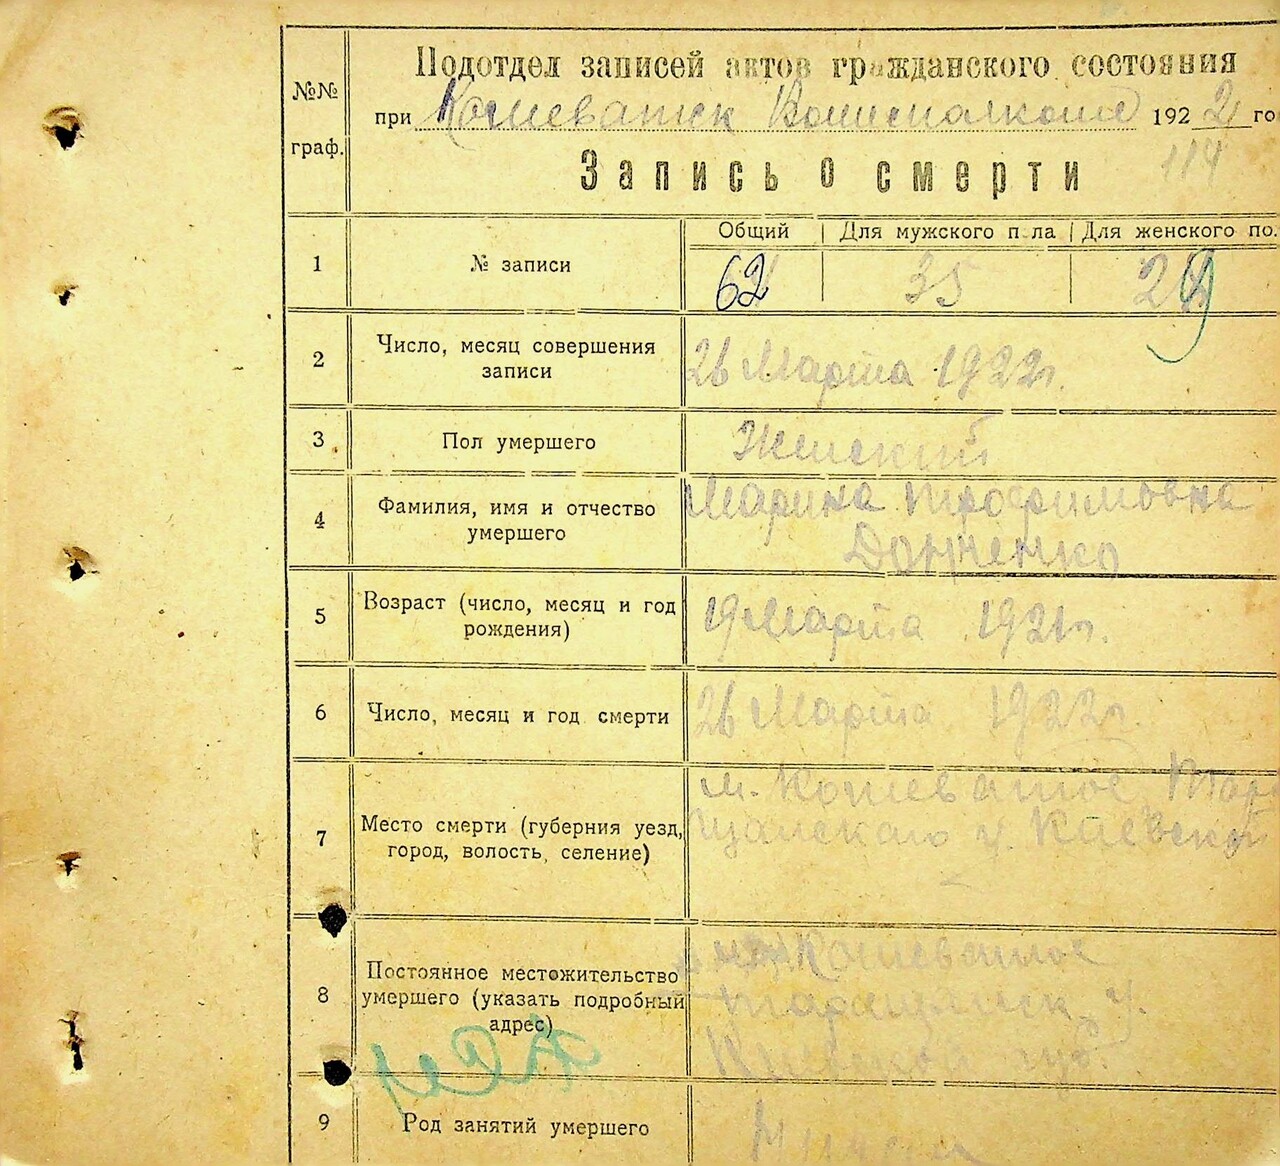 №№
граф.
Подотдел записей актов гражданского состояния
при Кошеватск Волисполкоме 1922 го
114
Запись о смерти
Общий Для мужского пола Для женского по.
1 № записи 62 35 29
2 Число, месяц совершения
записи
26 Марта 1922 г.
3 Пол умершего Женский
4 Фамилия, имя и отчество
умершего
Марина Трофимовна
Донченко
5 Возраст (число, месяц и год
рождения)
19 Марта 1921 г.
6 Число, месяц и год смерти 26 Марта 1922 г.
7 Место смерти (губерния уезд,
город, волость, селение)
м. Кошеватое Тара
щанского у. Киевской
8 Постоянное местожительство
умершего (указать подробный
адрес)
м. Кошеватое
Таращанск у.
Киевской губ.
9 Род занятий умершего